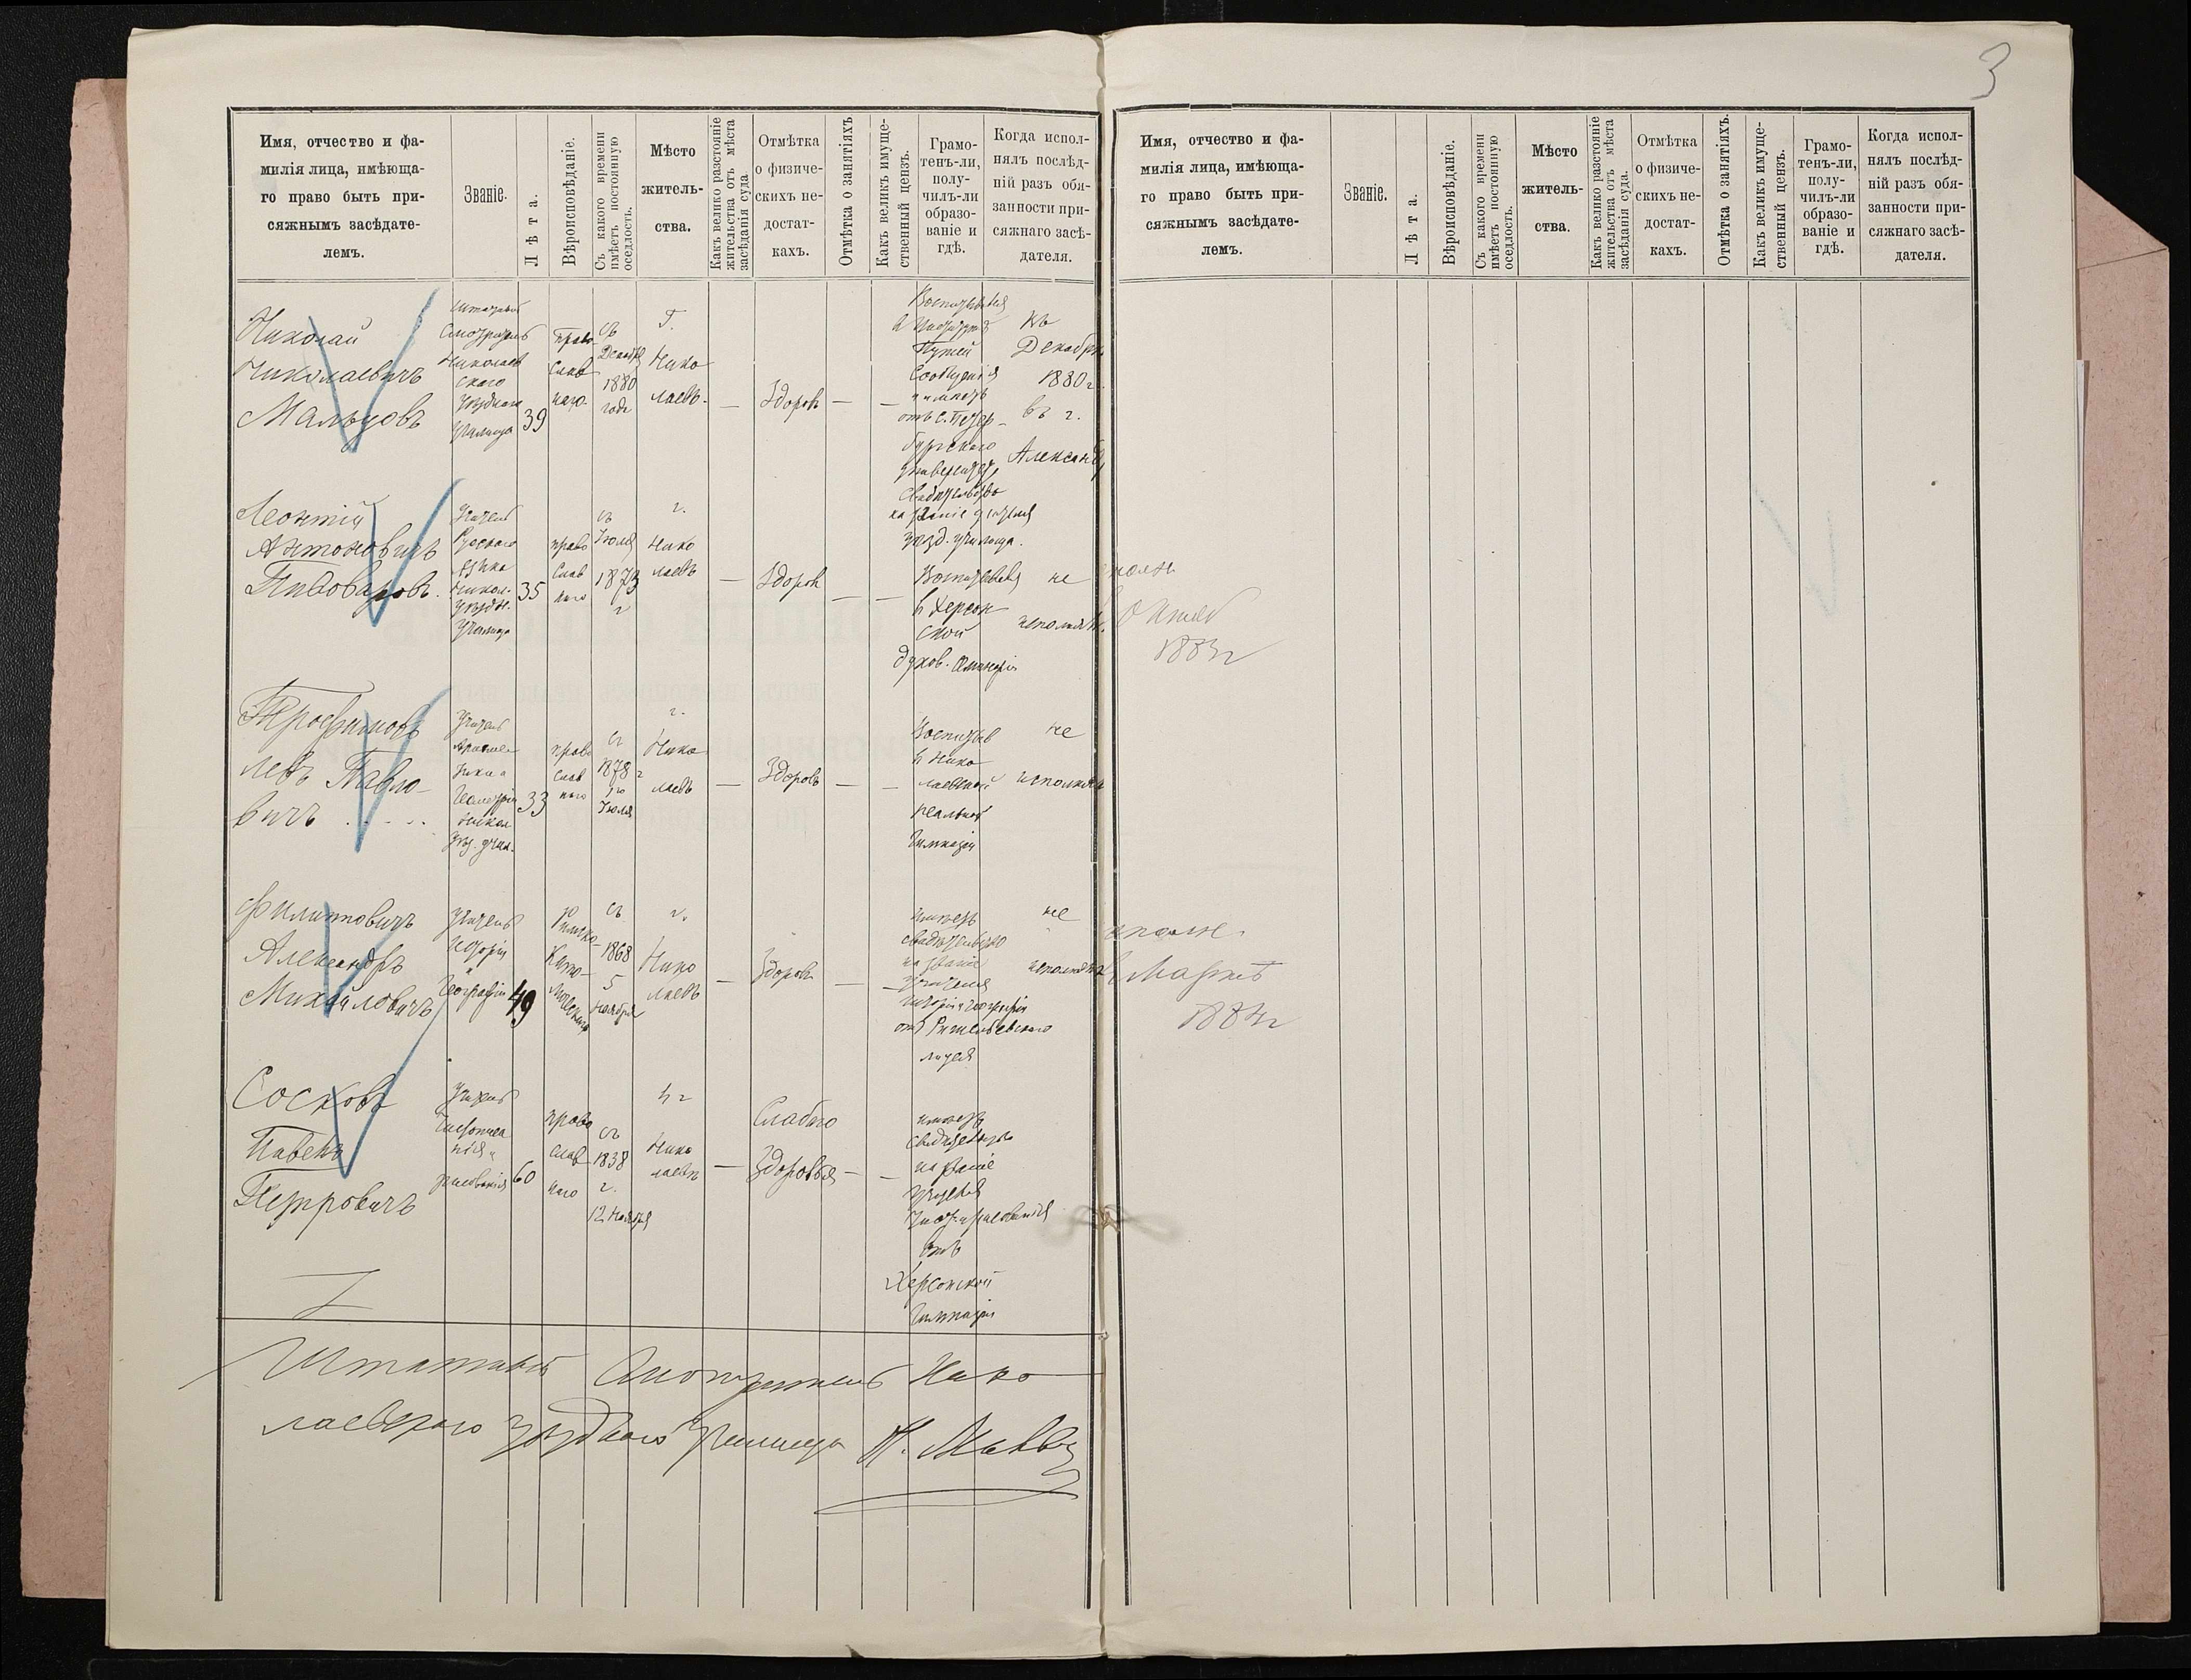 3
Имя, отчество и фа-
милія лица, имѣюща-
го право быть при-
сяжнымъ засѣдате-
лемъ.
Званіе.
Лѣта.
Вѣроисповѣданіе.
Съ какого времени
имѣетъ постоянную
оседлость.
Мѣсто
житель-
ства.
Какъ велико разстояніе
жительства отъ мѣста
засѣданія суда.
Отмѣтка
о физиче-
скихъ не-
достат-
кахъ.
Отмѣтка о занятіяхъ
Какъ великъ имуще-
ственный цензъ.
Грамо-
тенъ-ли,
полу-
чилъ-ли
образо-
ваніе и
гдѣ.
Когда испол-
нялъ послѣд-
ній разъ обя-
занности при-
сяжнаго засѣ-
дателя.
Николай
Николаевичъ
Мальцовъ
Штатный
Смотритель
Николаев
скаго
Уѣзднаго
Училища
39
Право
слав
наго
съ
Декабря
1880
года
Г.
Нико
лаевъ.
—
Здоровъ
—
—
Путей
Сообщенія
отъ С. Петер-
бургскаго
Университ.
свидѣтельство
на званіе учителя
уѣзд. училища.
Въ
Декабрѣ
1880 г.
въ г.
Леонтій
Антоновичъ
Пивоваровъ.
Учитель
Русскаго
языка
Никол.
Уѣздн.
Училища
35
право
слав
наго
съ
Іюля
1873
г
г.
Нико
лаевъ
—
Здоровъ
—
—
въ Херсон
ской
духов. Семинаріи
не
исполнялъ.
1883 г
Трофимовъ
Левъ Павло-
вичъ . . . .
Учитель
Ариѳме
тики и
Геометріи
Никол
Уѣз. учил.
33
право
слав
наго
съ
1878 г
1го
Іюля
г.
Нико
лаевъ
—
Здоровъ
—
—
въ Нико
лаевской
реальной
Гимназіи
не
исполнялъ
Филиповичъ
Александръ
Михайловичъ
Учитель
Исторіи
и
Географіи
49
Римско-
Като-
лическаго
съ
1868
5
Ноября
г.
Нико
лаевъ
—
Здоровъ
—
имѣетъ
свидѣтельство
на званіе
учителя
исторіи и географіи
отъ Ришельевскаго
лицея
не
исполнялъ
Мартъ
Сосковъ
Павелъ
Петровичъ
Учитель
Чистописа
нія и
рисованія
60
право
слав
наго
съ
1838
г.
12 Ноября
въ г
Нико
лаевъ
—
Слабаго
Здоровья
—
—
имѣетъ
свидѣтельство
на званіе
учителя
Чист. и рисованія
отъ
Херсонской
Гимназіи
Штатный Смотритель Нико
лаевскаго Уѣзднаго Училища Н.
Имя, отчество и фа-
милія лица, имѣюща-
го право быть при-
сяжнымъ засѣдате-
лемъ.
Званіе.
Лѣта.
Вѣроисповѣданіе.
Съ какого времени
имѣетъ постоянную
оседлость.
Мѣсто
житель-
ства.
Какъ велико разстояніе
жительства отъ мѣста
засѣданія суда.
Отмѣтка
о физиче-
скихъ не-
достат-
кахъ.
Отмѣтка о занятіяхъ.
Какъ великъ имуще-
ственный цензъ.
Грамо-
тенъ-ли,
полу-
чилъ-ли
образо-
ваніе и
гдѣ.
Когда испол-
нялъ послѣд-
ній разъ обя-
занности при-
сяжнаго засѣ-
дателя.